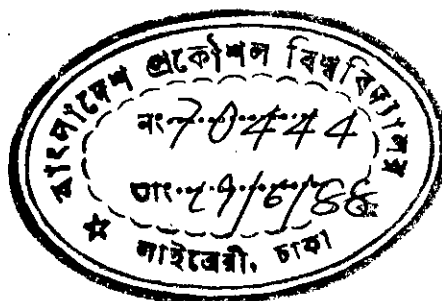 বাংলাদেশ প্রকৌশল বিশ্ববিদ্যালয়
নং 70444
তাং
লাইব্রেরী, ঢাকা